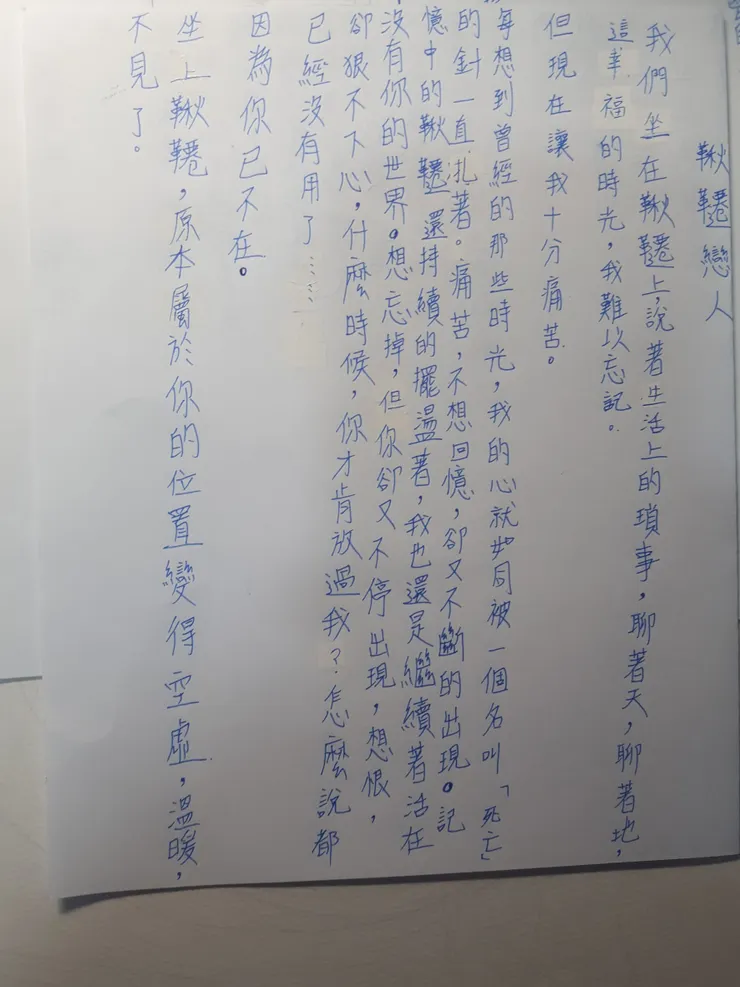 鞦韆戀人
我們坐在鞦韆上,說著生活上的瑣事,聊著天,聊著地,
這幸福的時光,我難以忘記。
但現在讓我十分痛苦。
每想到曾經的那些時光,我的心就如同被一個名叫「死亡」
的針一直扎著。痛苦,不想回憶,卻又不斷的出現。記
憶中的鞦韆還持續的擺盪著,我也還是繼續著活在
沒有你的世界。想忘掉,但你卻又不停出現,想恨,
卻狠不下心,什麼時候,你才肯放過我?怎麼說都
已經沒有用了……
因為你已不在。
坐上鞦韆,原本屬於你的位置變得空虛,溫暖,
不見了。